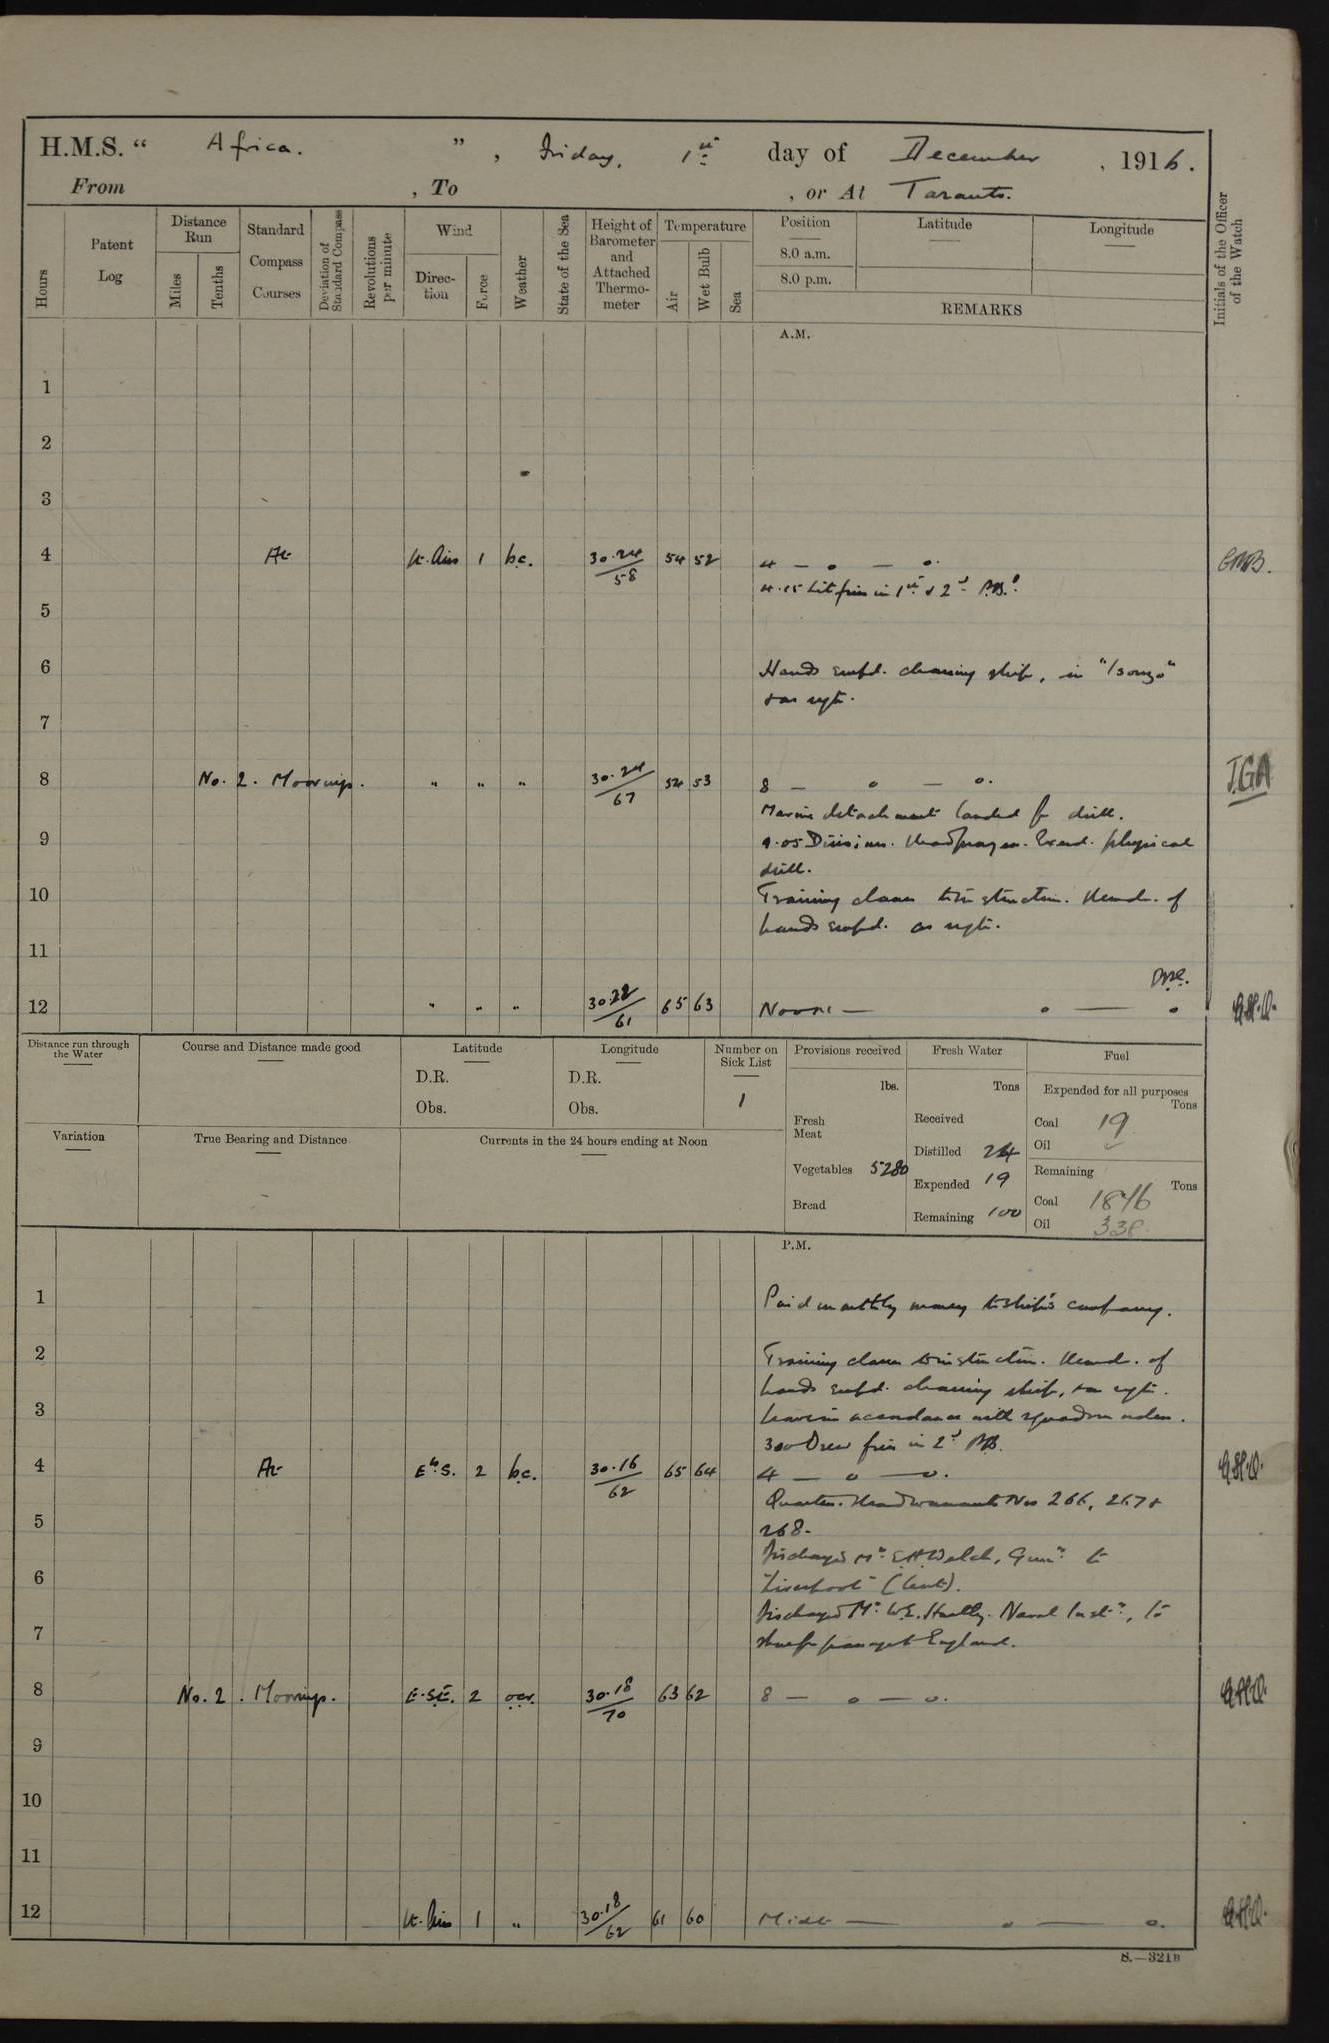 H.M.S. “ Africa. ” , Friday, 1st day of December , 1916.
From , To , or At Taranto.
Hours
Patent Log
Distance Run
Miles
Tenths
Standard Compass Courses
Deviation of Standard Compass
Revolutions per minute
Wind
Direction
Force
Weather
State of the Sea
Height of Barometer and Attached Thermometer
Temperature
Air
Wet Bulb
Sea
Position
8.0 a.m.
8.0 p.m.
Latitude
Longitude
REMARKS
Initials of the Officer of the Watch
A.M.
1
2
3
4 At Lt. Airs 1 bc. 30.24/58 54 52 4 — o — o.
4.15 Lit fires in 1st & 2nd P.B.s
5
6 Hands empd. cleaning ship, in "Isonzo"
& as reqte.
7
8 No. 2. Moorings. " " " 30.24/67 54 53 8 — o — o. J.G.A
Marine detachment landed for drill.
9 9.05 Divisions. Read prayers. Exerd. physical
drill.
10 Training classes to instruction. Remdr. of
hands empd. as reqte.
11
12 " " " 30.22/61 65 63 Noon — o — o
Distance run through the Water
Course and Distance made good
Latitude
D.R.
Obs.
Longitude
D.R.
Obs.
Number on Sick List
1
Provisions received
lbs.
Fresh Meat
Vegetables 5280
Bread
Fresh Water
Tons
Received
Distilled 24
Expended 19
Remaining 100
Fuel
Expended for all purposes
Tons
Coal 19
Oil
Remaining
Tons
Coal 1846
Oil 338
Variation
True Bearing and Distance
Currents in the 24 hours ending at Noon
P.M.
1 Paid monthly money to ship's company.
2 Training classes to instruction. Remdr. of
hands empd. cleaning ship, & as reqte.
3 Leave in accordance with squadron orders.
3.00 Drew fires in 2nd P.B.
4 At E b. S. 2 bc. 30.16/62 65 64 4 — o — o.
Quarters. Read warrants Nos 266, 267 &
5 268.
Discharged Mr. E.H. Welch, Gunr. to
6 "Liverpool" (lent).
Discharged Mr. W.E. Hartly. Naval Instr., to
7 shore for passage to England.
8 No. 2. Moorings. E.S.E. 2 ocr. 30.18/70 63 62 8 — o — o.
9
10
11
12 Lt. Airs 1 " 30.18/62 61 60 Midt — o — o.
S.—321B